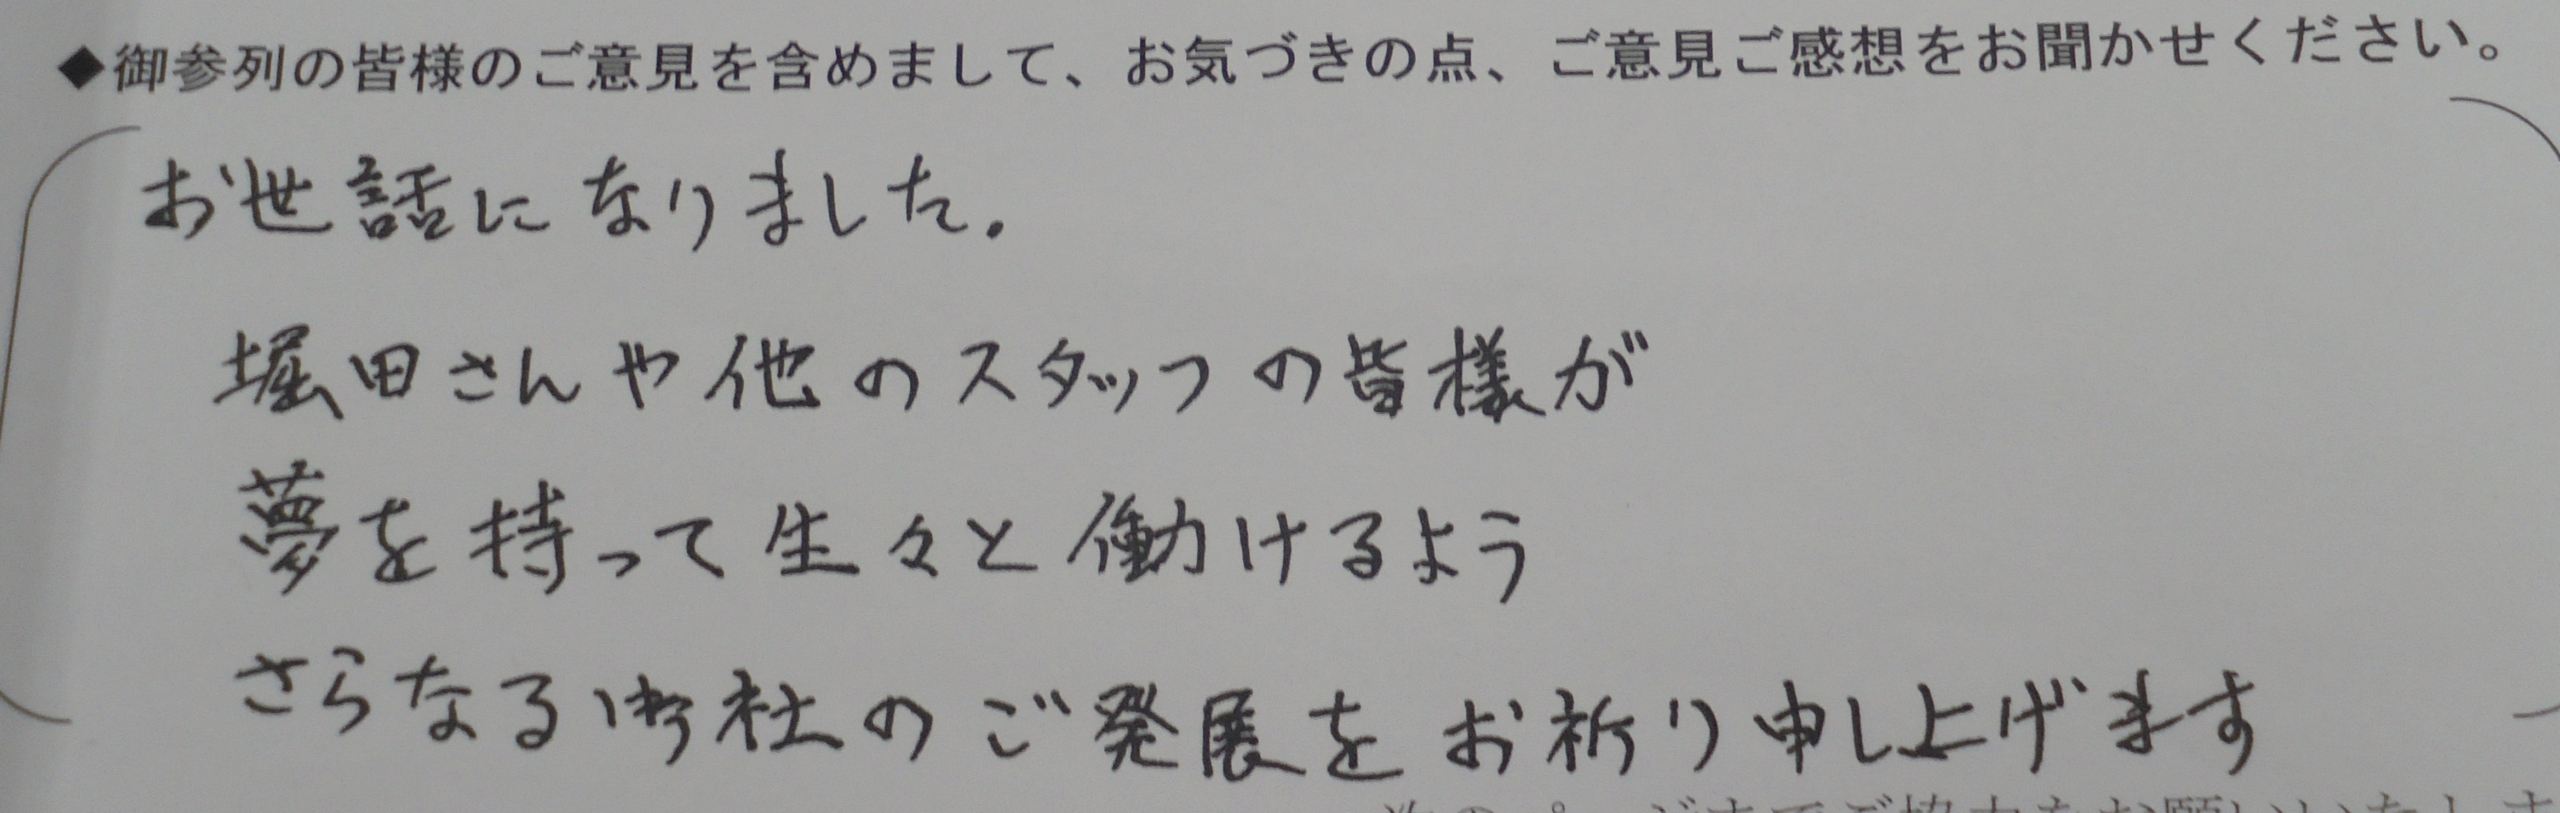 ◆御参列の皆様のご意見を含めまして、お気づきの点、ご意見ご感想をお聞かせください。
お世話になりました.
堀田さんや他のスタッフの皆様が
夢を持って生々と働けるよう
さらなる御社のご発展をお祈り申し上げます